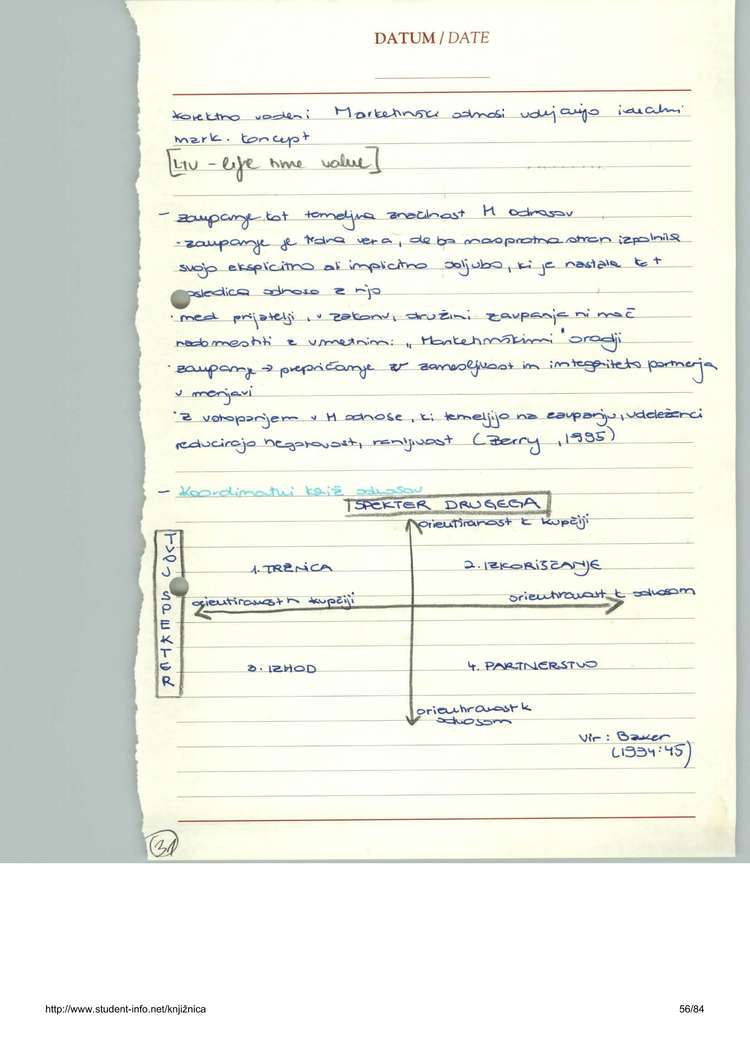 DATUM / DATE
Korektno vodeni Marketinški odnosi udejanjo idealni
mark. koncept
[LTV - life time value]
- zaupanje kot temeljna značilnost M odnosov
· zaupanje je trdna vera, da bo nasprotna stran izpolnila
svojo eksplicitno ali implicitno obljubo, ki je nastala kot
posledica odnosa z njo
· med prijatelji, v zakonu, družini zaupanja ni moč
nadomestiti z umetnimi "Marketinškimi" orodji
· zaupanje → prepričanje v zanesljivost in integriteto partnerja
v menjavi
· z vstopanjem v M odnose, ki temeljijo na zaupanju, udeleženci
reducirajo negotovost, ranljivost (Berry, 1995)
- Koordinatni križ odnosov
SPEKTER DRUGEGA
orientiranost k kupčiji
TVOJ SPEKTER
1. TRŽNICA
2. IZKORIŠČANJE
orientiranost k kupčiji
orientiranost k odnosom
3. IZHOD
4. PARTNERSTVO
orientiranost k
odnosom
Vir:
(1994:45)
31
http://www.student-info.net/knjižnica
56/84